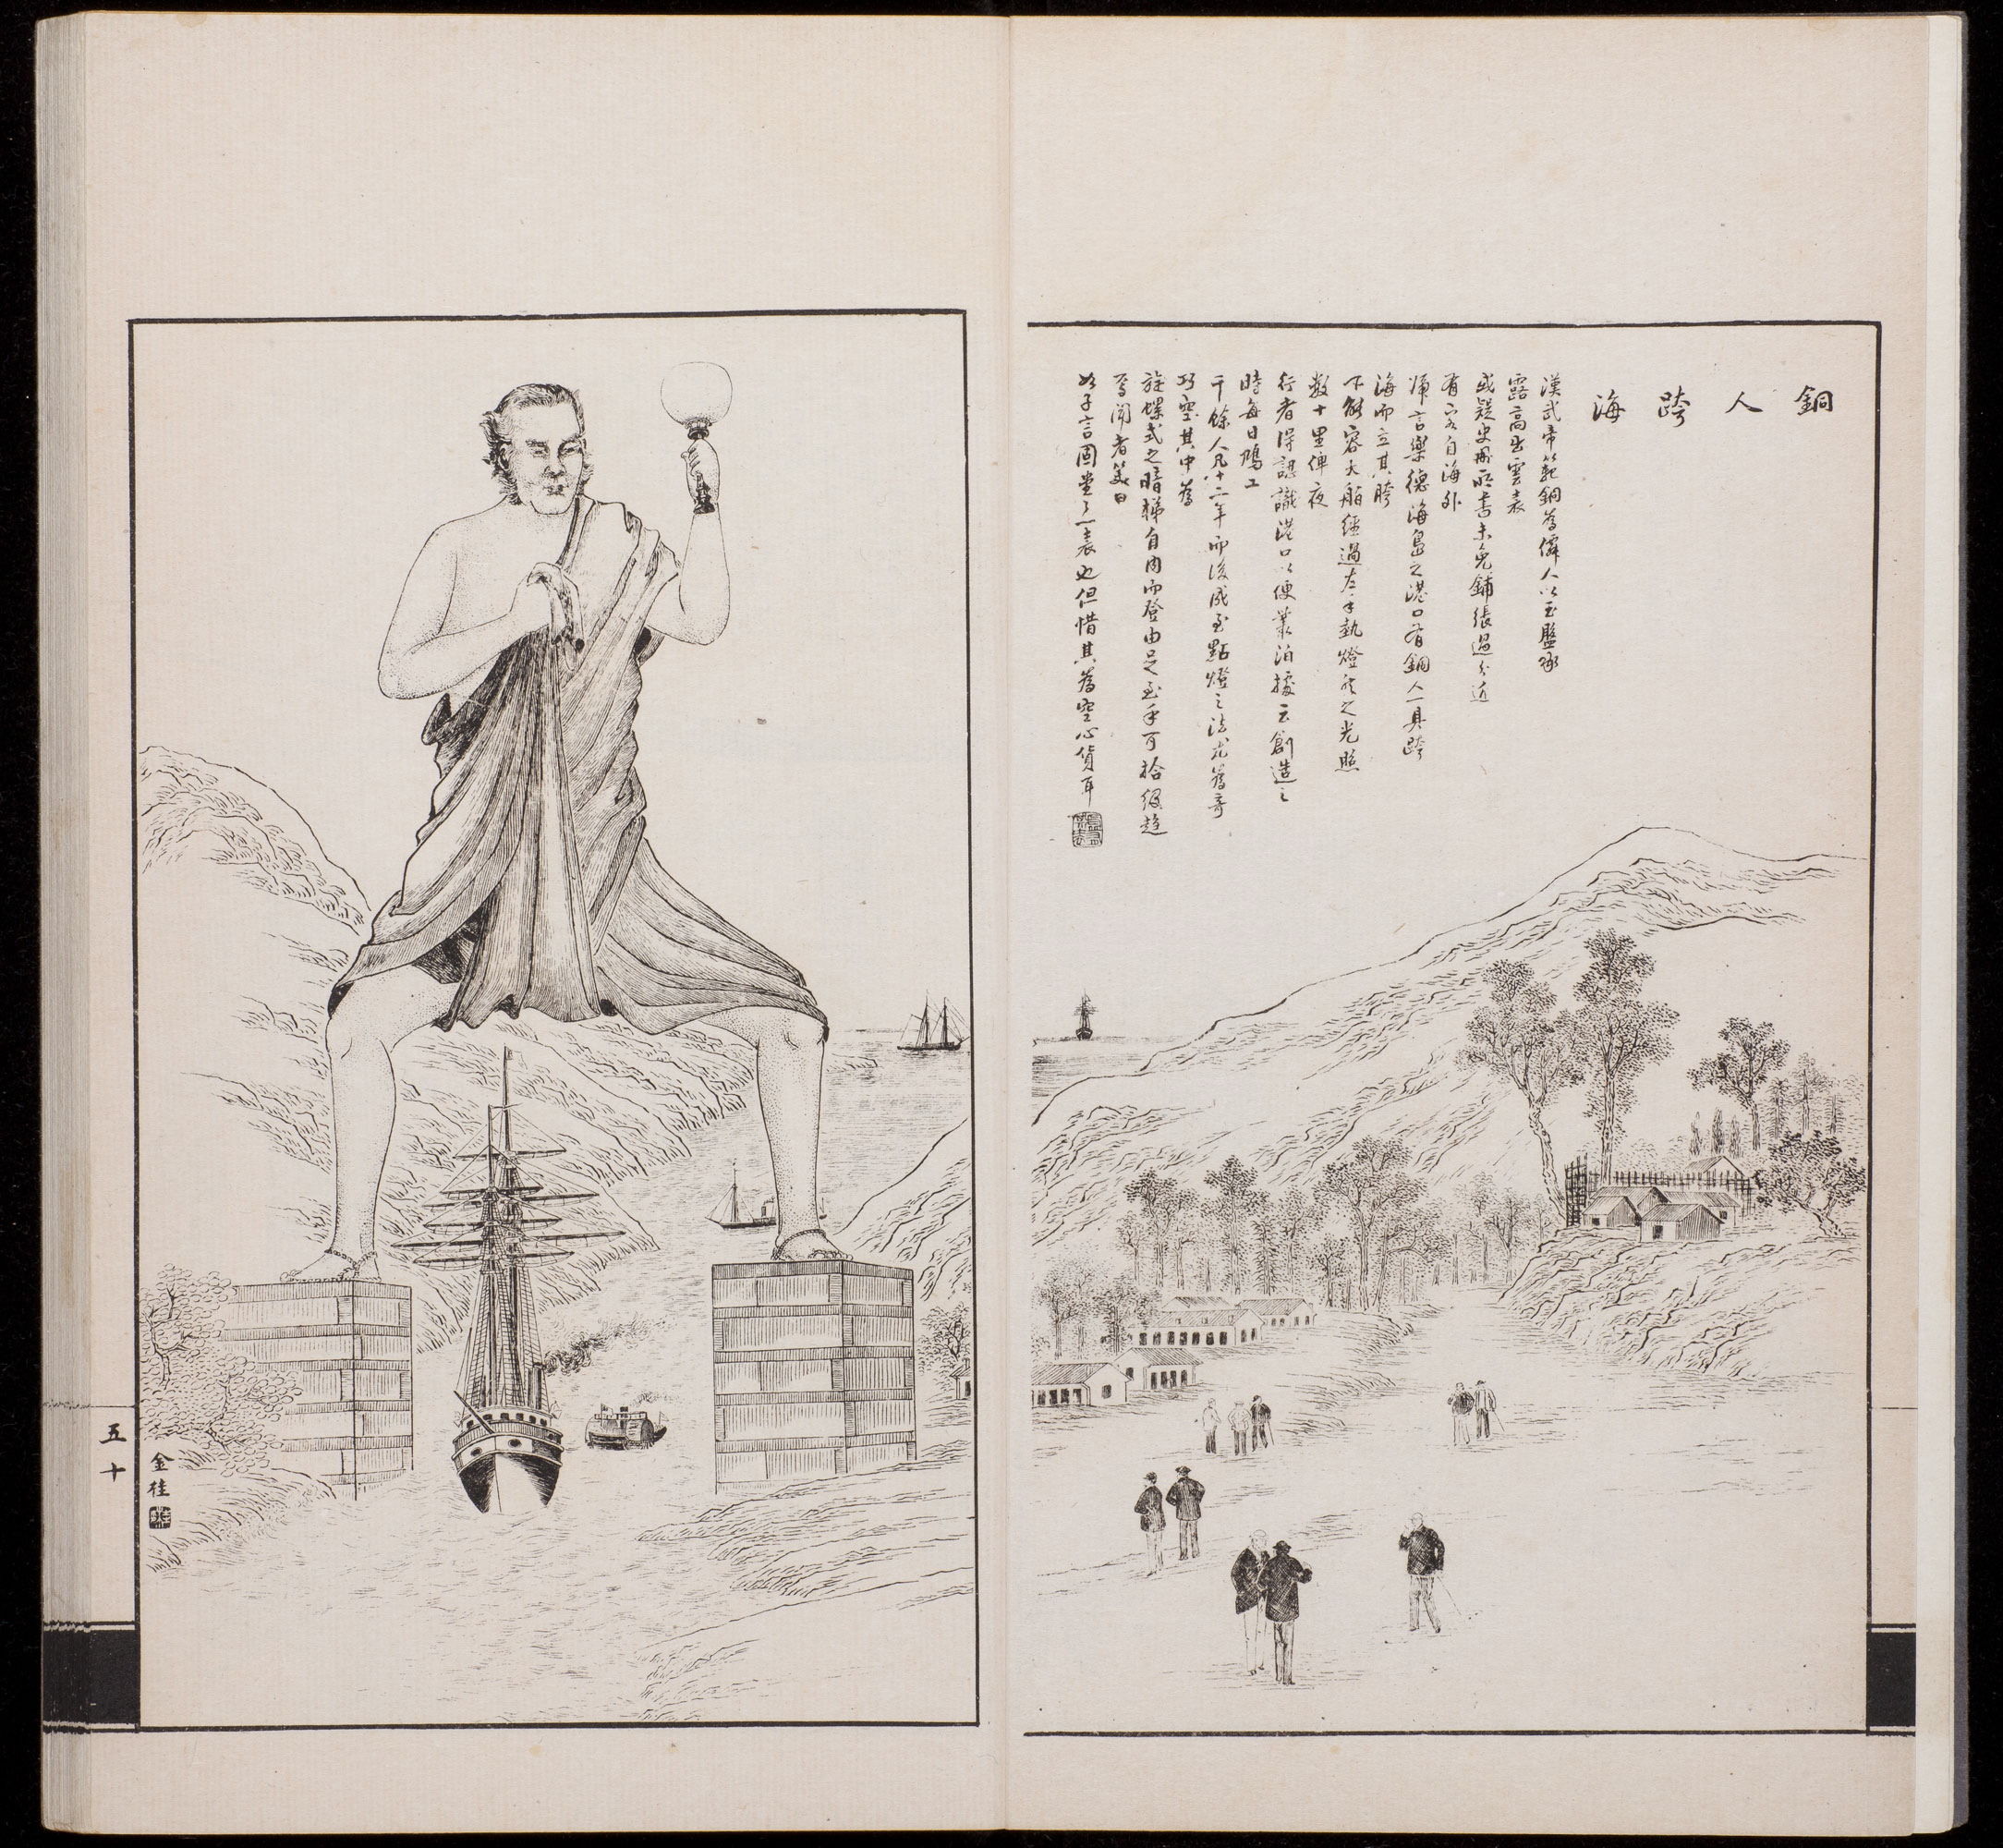 銅人跨海
漢武帝範銅為僊人以玉盤承
露高出雲表
或疑史冊所書未免鋪張過分近
有客自海外
歸言樂德海島之港口有銅人一具跨
海而立其胯
下能容大舶經過左手執燈之光照
數十里俾夜
行者得認識港口以便叢泊據云創造之
時每日鳩工
千餘人凡十二年而後成至點燈之法尤為奇
巧空其中為
旋螺式之暗梯自內而登由足至手可拾級趨
焉聞者笑曰
如子言固堂々一表也但惜其為空心貨耳
金桂
五十